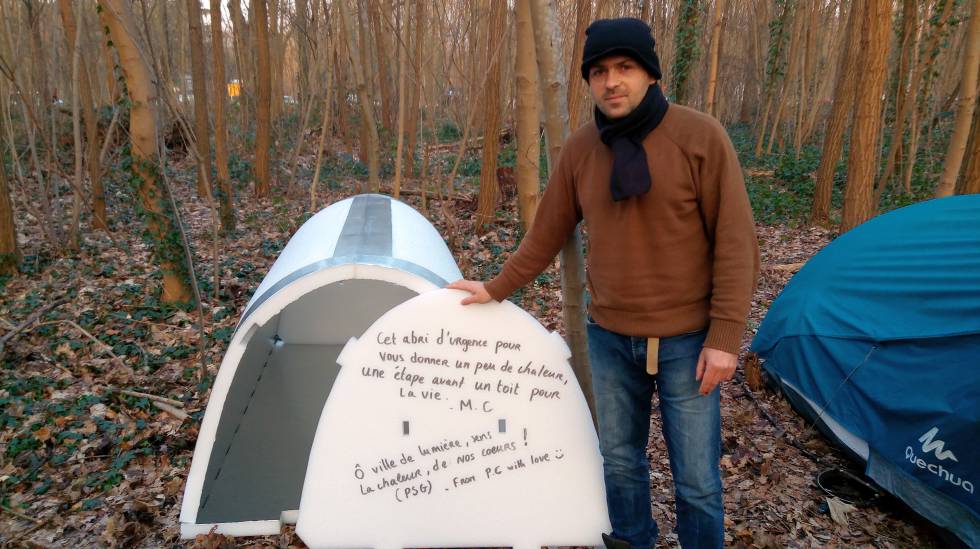 Cet abri d'urgence pour
vous donner un peu de chaleur,
une étape avant un toit pour
la vie.
- M.C
Ô ville de lumière, sens
La chaleur, de nos coeurs !
(PSG) - From P.G with love ☺
Quechua